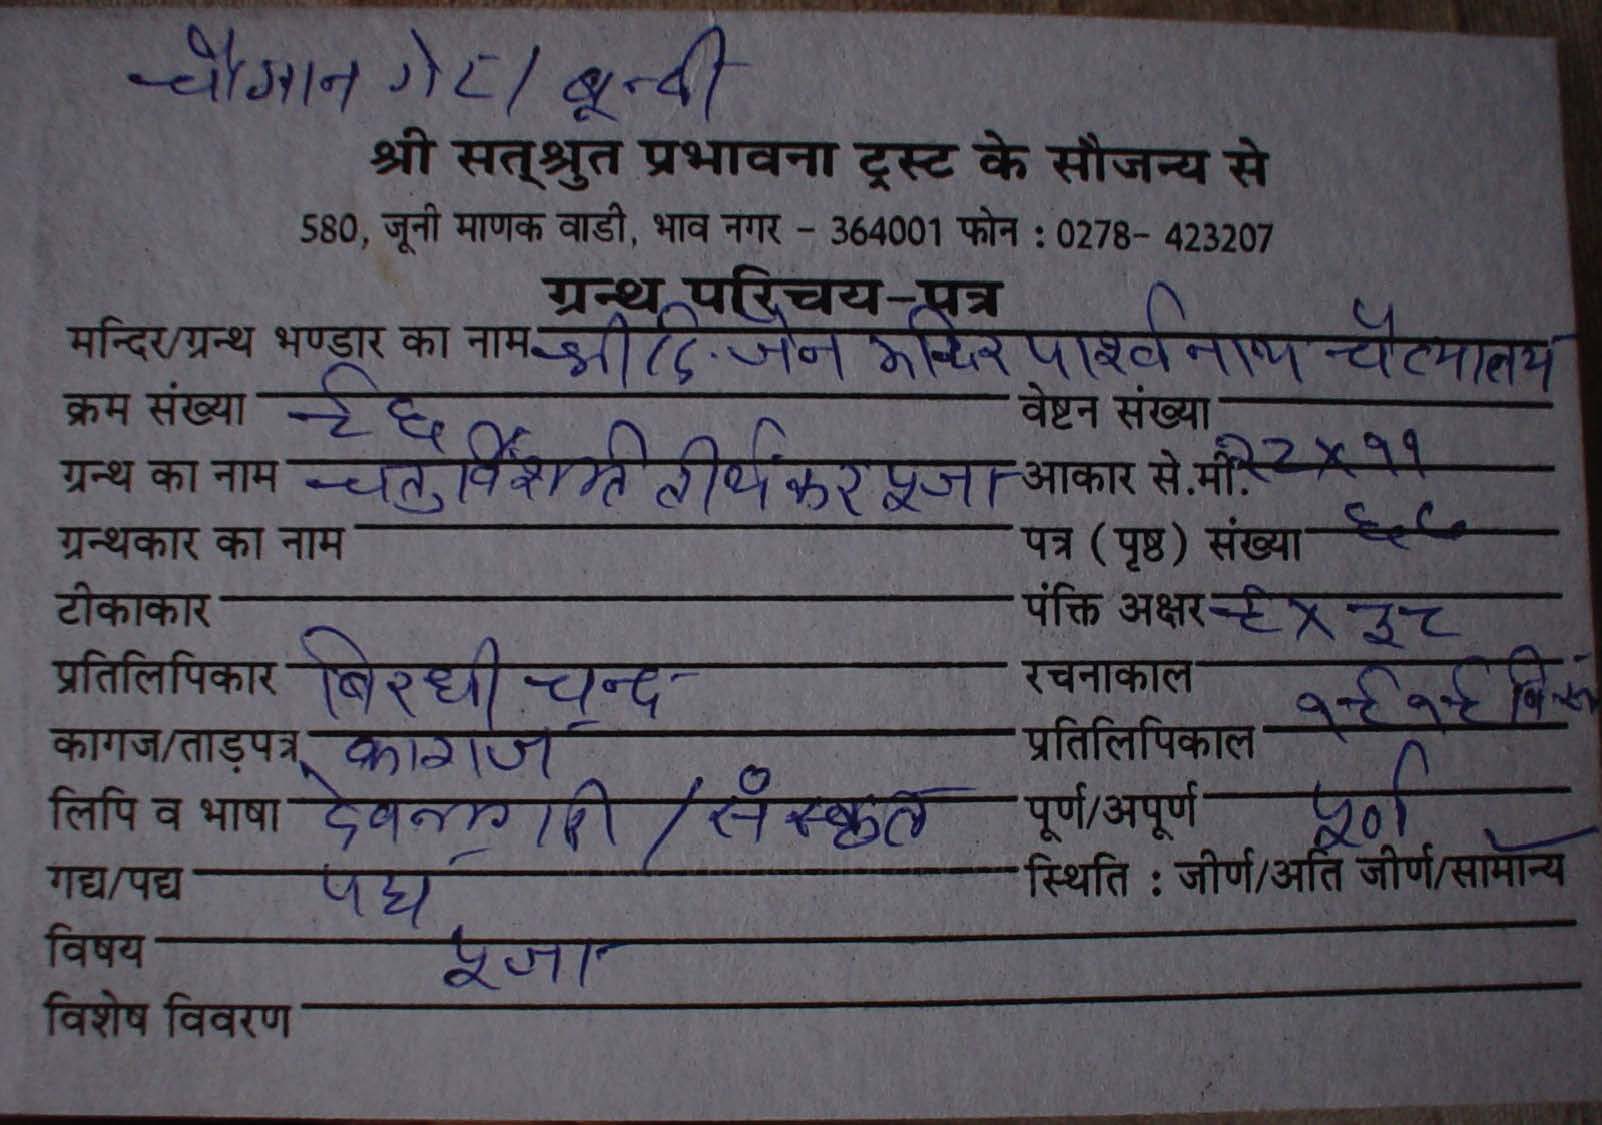 चौगान गेट / बून्दी
श्री सत्श्रुत प्रभावना ट्रस्ट के सौजन्य से
580, जूनी माणक वाडी, भाव नगर - 364001 फोन : 0278- 423207
ग्रन्थ परिचय-पत्र
मन्दिर/ग्रन्थ भण्डार का नाम श्री दि. जैन मन्दिर पार्श्वनाथ चैत्यालय
क्रम संख्या ९६ वेष्टन संख्या
ग्रन्थ का नाम चतुर्विंशति तीर्थंकर पूजा आकार से.मी. २२ x ११
ग्रन्थकार का नाम पत्र ( पृष्ठ ) संख्या ६८
टीकाकार पंक्ति अक्षर ९ x ३८
प्रतिलिपिकार बिरधी चन्द रचनाकाल
कागज/ताड़पत्र कागज प्रतिलिपिकाल १९१९ वि.सं.
लिपि व भाषा देवनागरी / संस्कृत पूर्ण/अपूर्ण पूर्ण
गद्य/पद्य पद्य स्थिति : जीर्ण/अति जीर्ण/सामान्य
विषय पूजा
विशेष विवरण